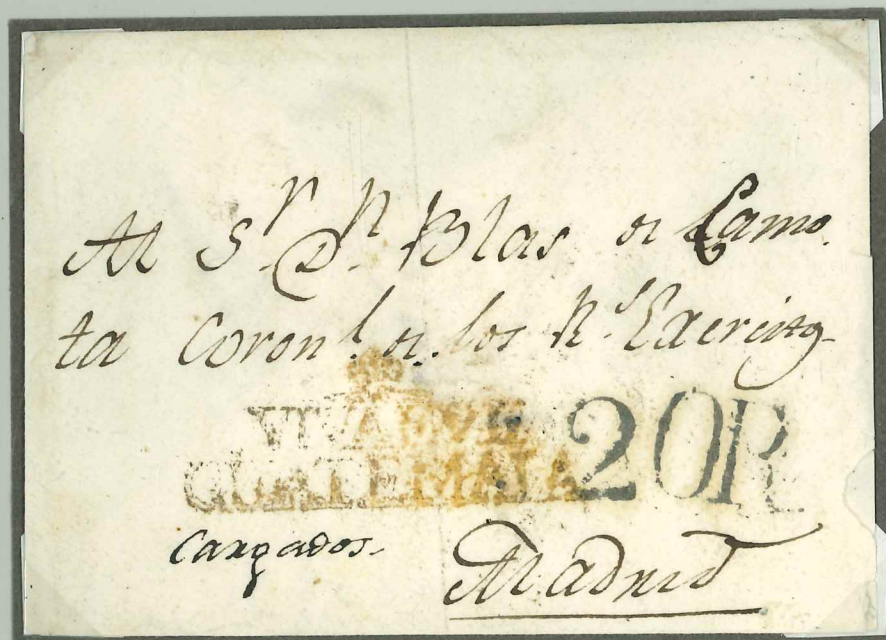 Al Sr. Dn. Blas de Lamo
ta Coronl. de los Rs. Exercitos
GUATEMALA 20R
Cargados.
Madrid